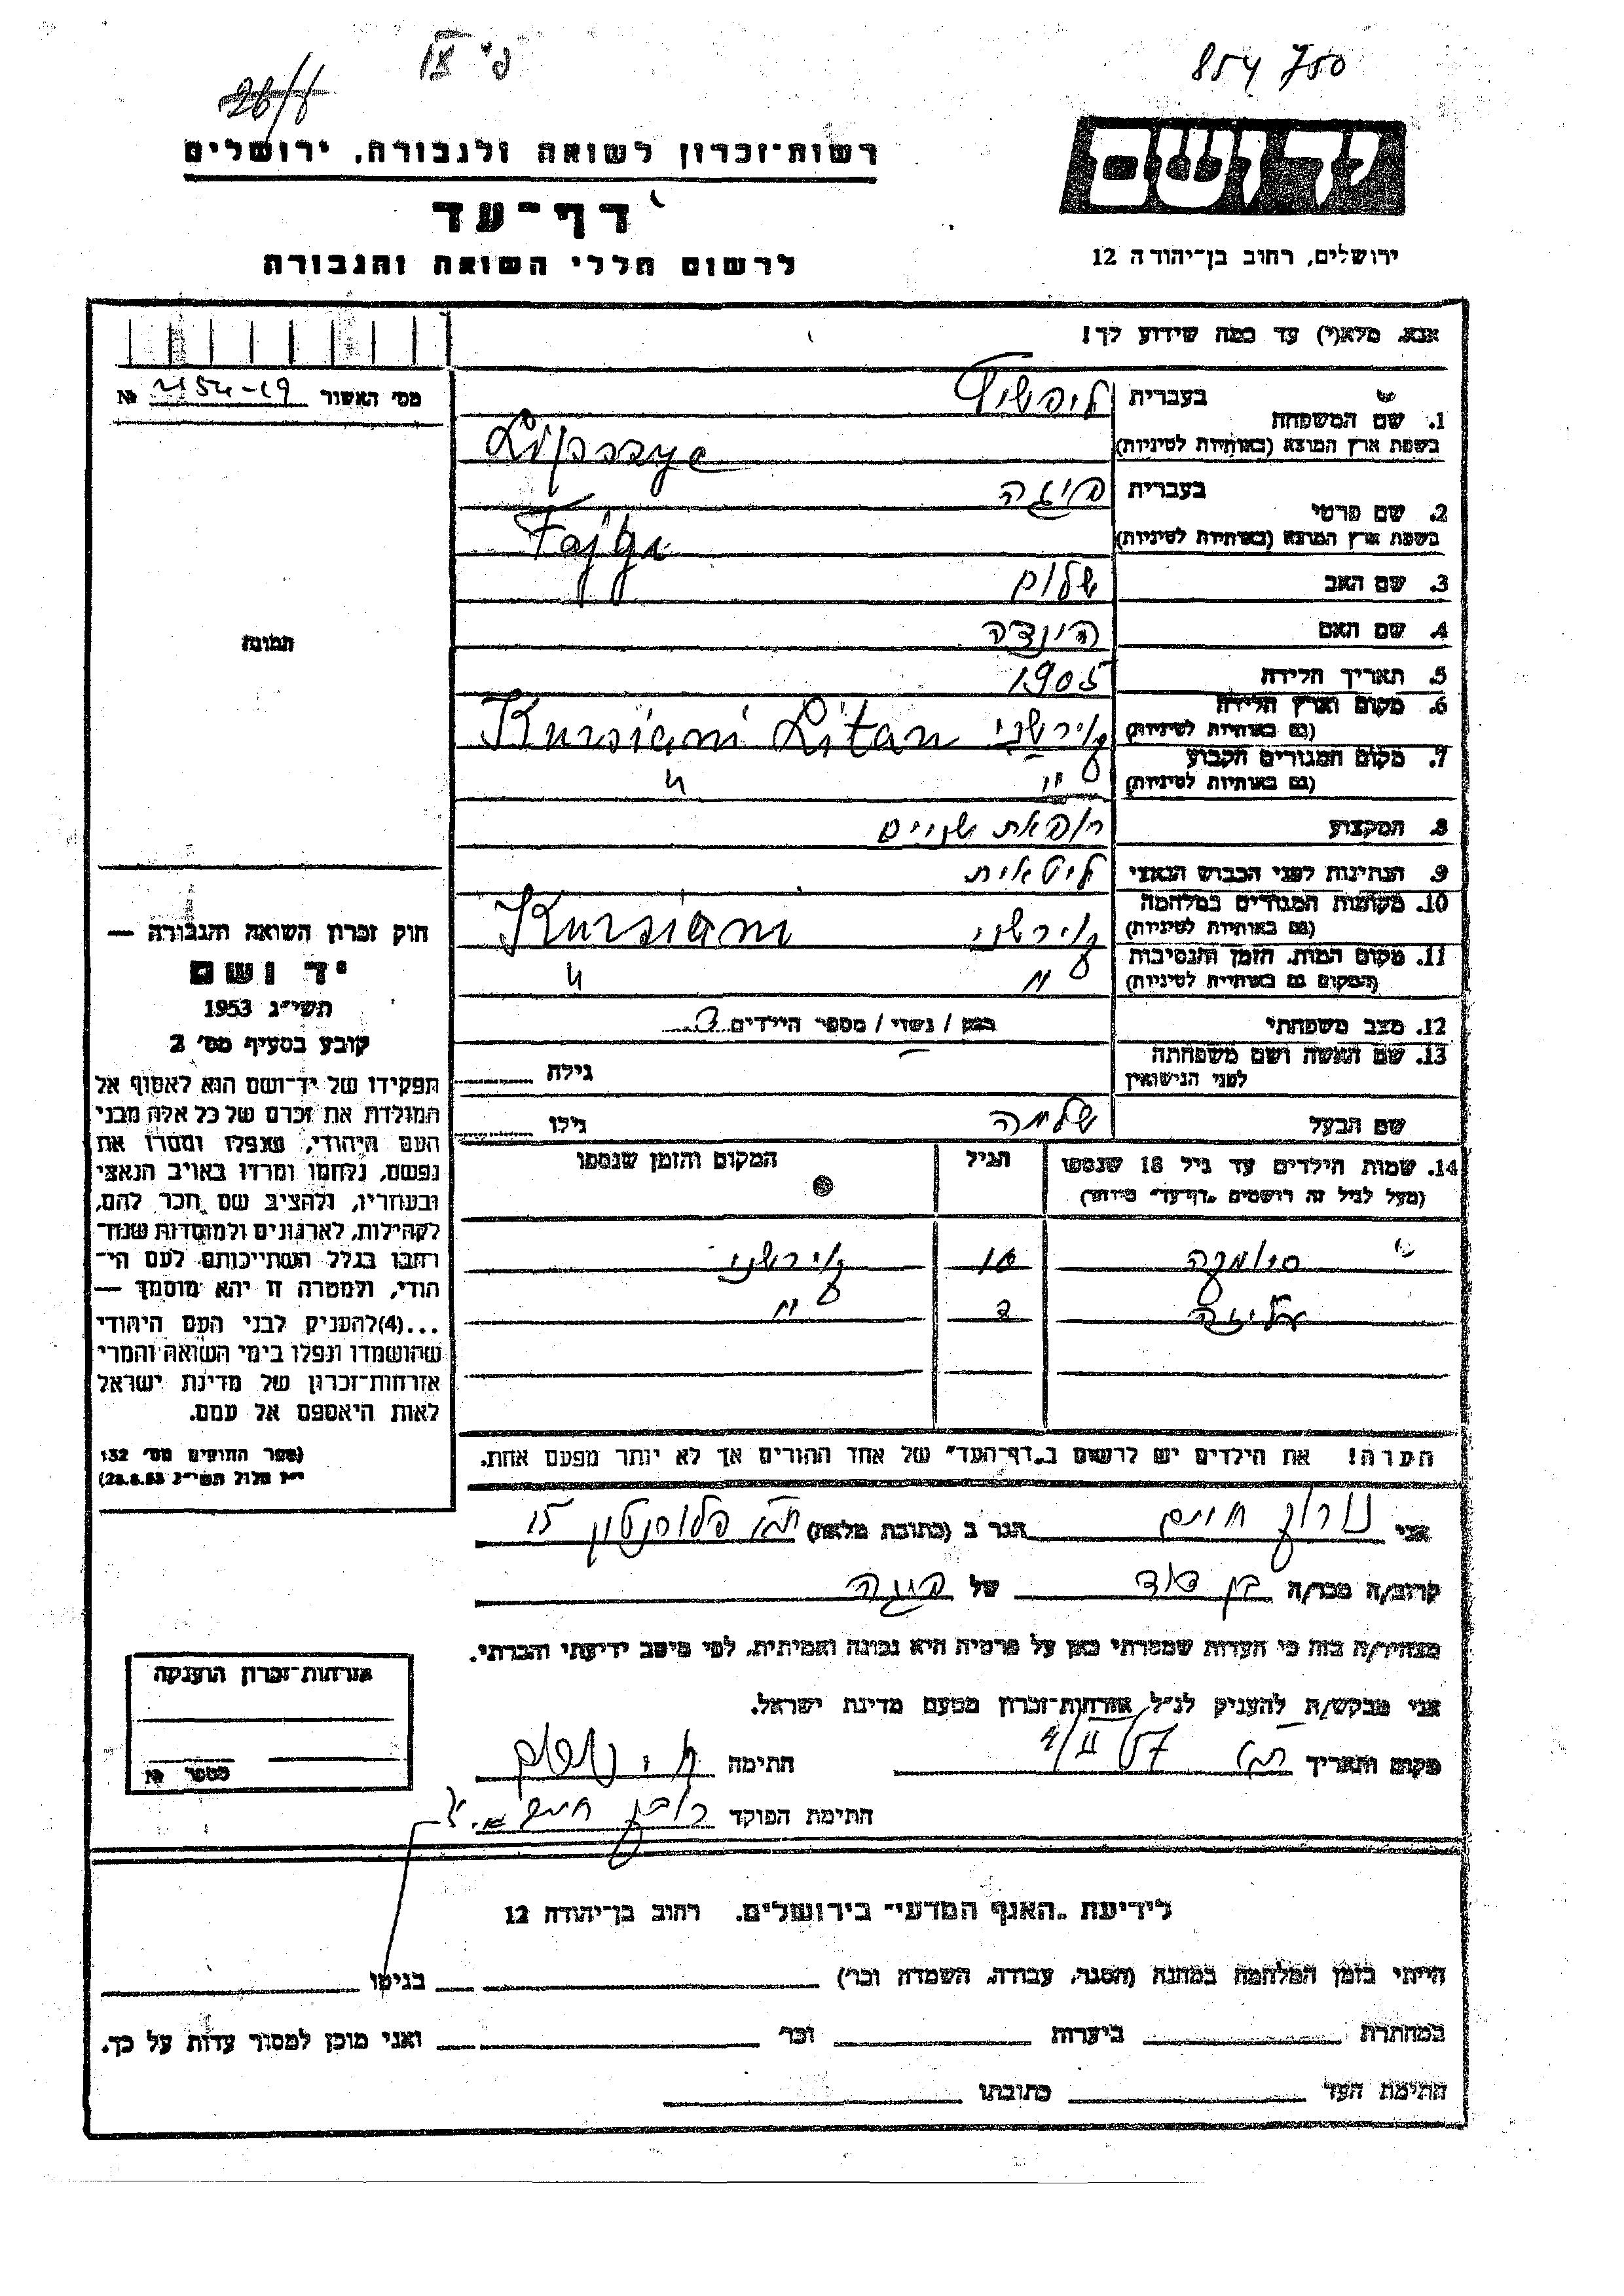 854 750
26/8
יד ושם
רשות־זכרון לשואה ולגבורה, ירושלים
דף־עד
לרשום חללי השואה והגבורה
ירושלים, רחוב בן־יהודה 12
אנא, מלא(י) עד כמה שידוע לך!
מס׳ האשור №
1. שם המשפחה בעברית ליפשיץ
בשפת ארץ המוצא (באותיות לטיניות) Lipszyc
2. שם פרטי בעברית פייגה
בשפת ארץ המוצא (באותיות לטיניות) Fajga
3. שם האב שלום
4. שם האם הינדה
5. תאריך הלידה 1905
6. מקום וארץ הלידה (גם באותיות לטיניות) קירשני Kursiani Litau
7. מקום המגורים הקבוע (גם באותיות לטיניות) " "
8. המקצוע רופאת שניים
9. הנתינות לפני הכבוש הנאצי ליטאית
10. מקומות המגורים במלחמה (גם באותיות לטיניות) קירשני Kursiani
11. מקום המות, הזמן והנסיבות (המקום גם באותיות לטיניות) " "
12. מצב משפחתי רווק / נשוי / מספר הילדים
13. שם האשה ושם משפחתה לפני הנישואין גילה
שם הבעל שלמה גילו
14. שמות הילדים עד גיל 18 שנספו (מעל לגיל זה רושמים „דף־עד״ מיוחד) הגיל המקום והזמן שנספו
קירשני
"
הערה! את הילדים יש לרשום ב„דף־העד״ של אחד ההורים אך לא יותר מפעם אחת.
תמונה
חוק זכרון השואה והגבורה —
יד ושם
תשי״ג 1953
קובע בסעיף מס׳ 2
תפקידו של יד־ושם הוא לאסוף אל
המולדת את זכרם של כל אלה מבני
העם היהודי, שנפלו ומסרו את
נפשם, נלחמו ומרדו באויב הנאצי
ובעוזריו, ולהציב שם וזכר להם,
לקהילות, לארגונים ולמוסדות שנח־
רבו בגלל השתייכותם לעם הי־
הודי, ולמטרה זו יהא מוסמך —
...(4)להעניק לבני העם היהודי
שהושמדו ונפלו בימי השואה והמרי
אזרחות־זכרון של מדינת ישראל
לאות היאספם אל עמם.
(ספר החוקים מס׳ 132
י״ז אלול תשי״ג 28.8.53)
אני חיים הגר ב (כתובת מלאה) ת״א פלורנטין 15
קרוב/ה מכר/ה בן דוד של פייגה
מצהיר/ה בזה כי העדות שמסרתי כאן על פרטיה היא נכונה ואמיתית, לפי מיטב ידיעתי והכרתי.
אני מבקש/ת להעניק לנ״ל אזרחות־זכרון מטעם מדינת ישראל.
מקום ותאריך ת״א 57 חתימה
חתימת הפוקד
אזרחות־זכרון הוענקה
מספר №
לידיעת „האגף המדעי״ בירושלים, רחוב בן־יהודה 12
הייתי בזמן המלחמה במחנה (הסגר, עבודה, השמדה וכו׳) בגיטו
במחתרת ביערות וכו׳ ואני מוכן למסור עדות על כך.
חתימת העד כתובתו